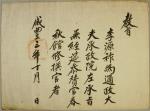 敎旨
李源祚爲通政大
夫承政院左承旨
兼經筵參贊官春
秋館修撰官者
咸豊三年十月 日